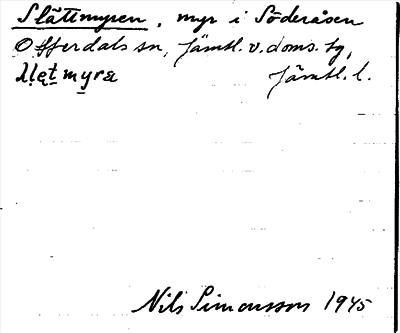 Slåttmyren, myr i Söderåsen
Offerdals sn, Jämtl. v. doms. tg,
myra Jämtl. l.
Nils Simonsson 1945